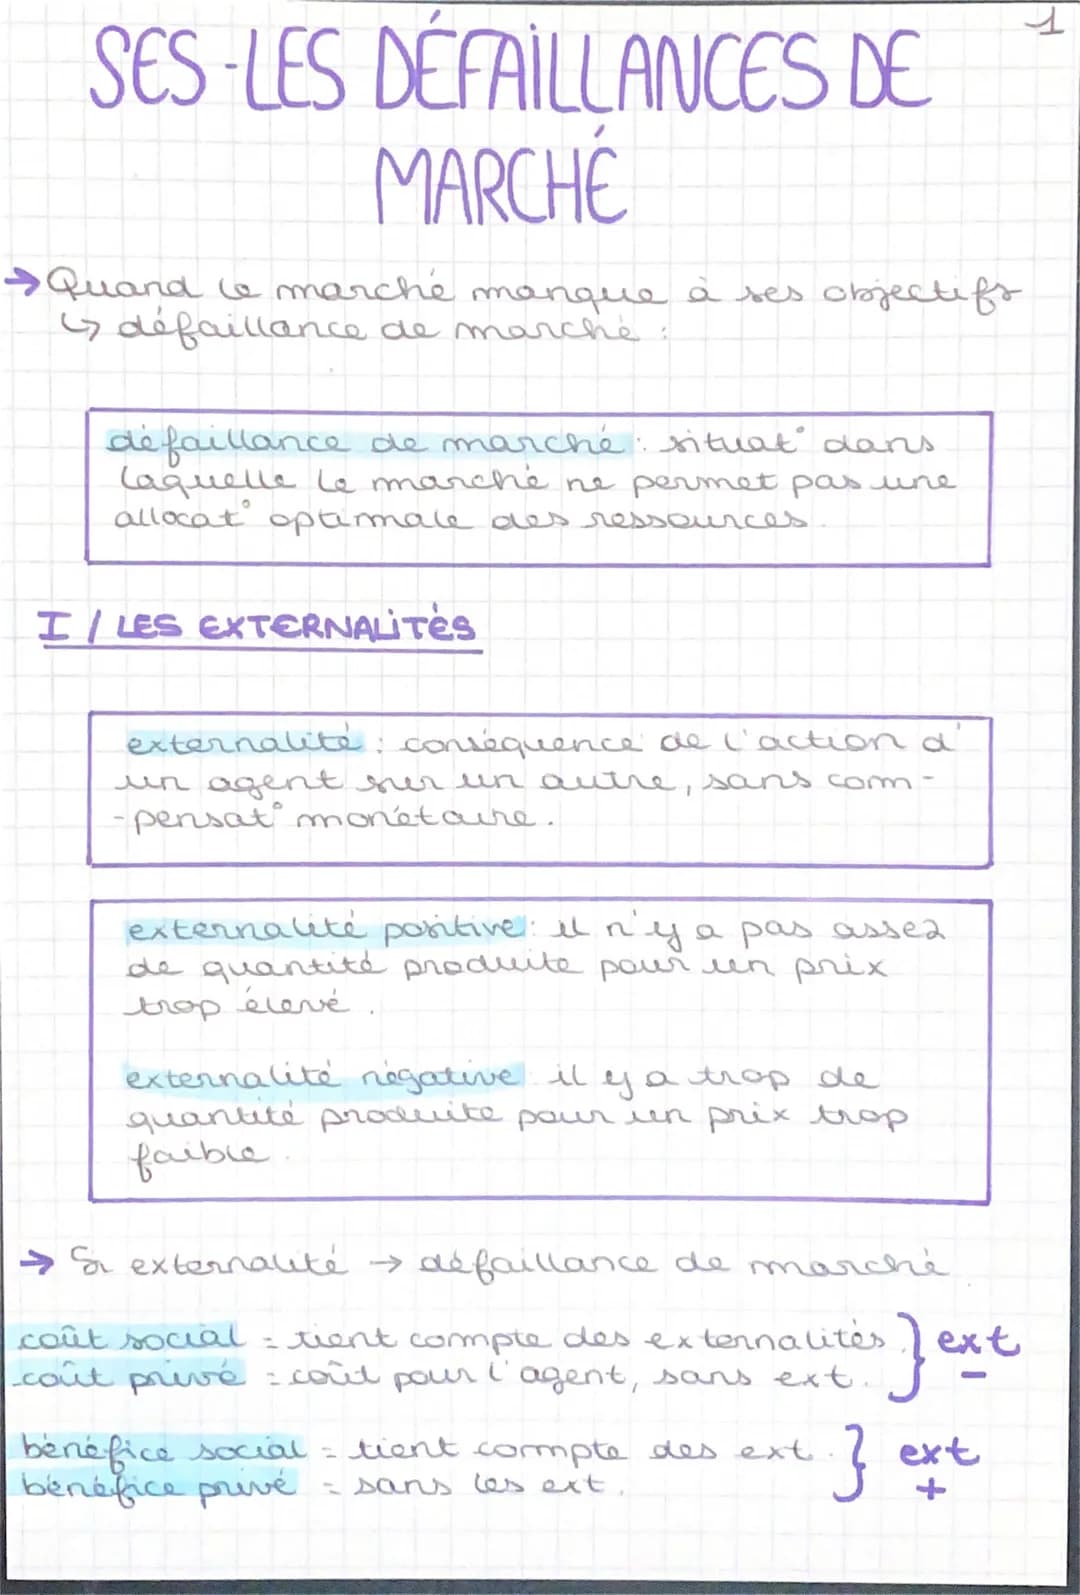 1
SES-LES DÉFAILLANCES DE
MARCHÉ
→ Quand le marché manque à ses objectifs
↳ défaillance de marché :
défaillance de marché : situat° dans
laquelle le marché ne permet pas une
allocat° optimale des ressources.
I / LES EXTERNALITÉS
externalité : conséquence de l'action d'
un agent sur un autre, sans com-
-pensat° monétaire.
externalité positive : il n'y a pas assez
de quantité produite pour un prix
trop élevé.
externalité négative : il y a trop de
quantité produite pour un prix trop
faible.
→ Si externalité → défaillance de marché
coût social = tient compte des externalités. } ext
coût privé = coût pour l'agent, sans ext. } -
bénéfice social = tient compte des ext. } ext
bénéfice privé = sans les ext. } +